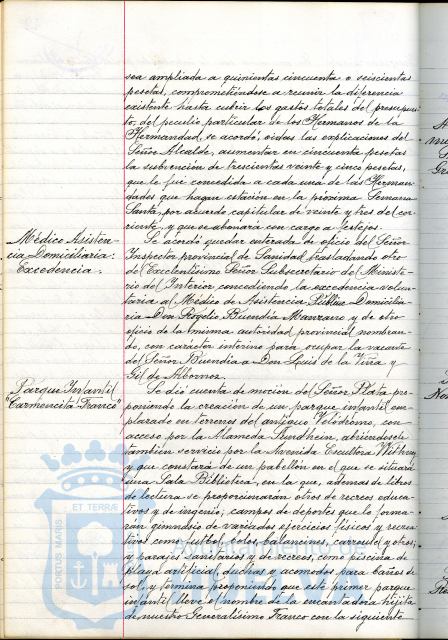 sea ampliada a quinientas cincuenta o seiscientas
pesetas, comprometiéndose a reunir la diferencia
existente hasta cubrir los gastos totales del presupues-
to, del peculio particular de los Hermanos de la
Hermandad, se acordó, oídas las explicaciones del
Señor Alcalde, aumentar en cincuenta pesetas
la subvención de trescientas veinte y cinco pesetas,
que le fue concedida a cada una de las Herman-
dades que hagan estación en la próxima Semana
Santa, por acuerdo capitular de veinte y tres del co-
rriente, y que se abonará con cargo a festejos.
Médico Asisten-
cia Domiciliaria:
Excedencia.
Se acordó quedar enterada de oficio del Señor
Inspector provincial de Sanidad trasladando otro
del Excelentísimo Señor Subsecretario del Ministe-
rio del Interior concediendo la excedencia volun-
taria al Médico de Asistencia Pública Domicilia-
ria Don Rogelio Buendía Manzano y de otro
oficio de la misma autoridad provincial nombran-
do, con carácter interino para ocupar la vacante
del Señor Buendía a Don Luis de la Viña y
Gil de Albornoz.
Parque Infantil
"Carmencita Franco"
Se dió cuenta de moción del Señor Plata pro-
poniendo la creación de un parque infantil em-
plazado en terrenos del antiguo Velódromo, con
acceso por la Alameda Sundheim, abriendosele
también servicio por la Avenida Escultora Withney
y que constará de un pabellón en el que se situará
una Sala Biblioteca, en la que, además de libros
de lectura se proporcionarán otros de recreos educa-
tivos y de ingenio; campos de deportes que lo forma-
rán gimnasio de variados ejercicios físicos y recrea-
tivos como futbol, bolos, balancines, carroussel y otros;
y parajes sanitarios y de recreos, como piscina de
playa artificial, duchas y acomodos para baños de
sol, y termina proponiendo que este primer parque
infantil lleve el nombre de la encantadora hijita
de nuestro Generalísimo Franco con la siguiente
PORTUS MARIS
ET TERRÆ